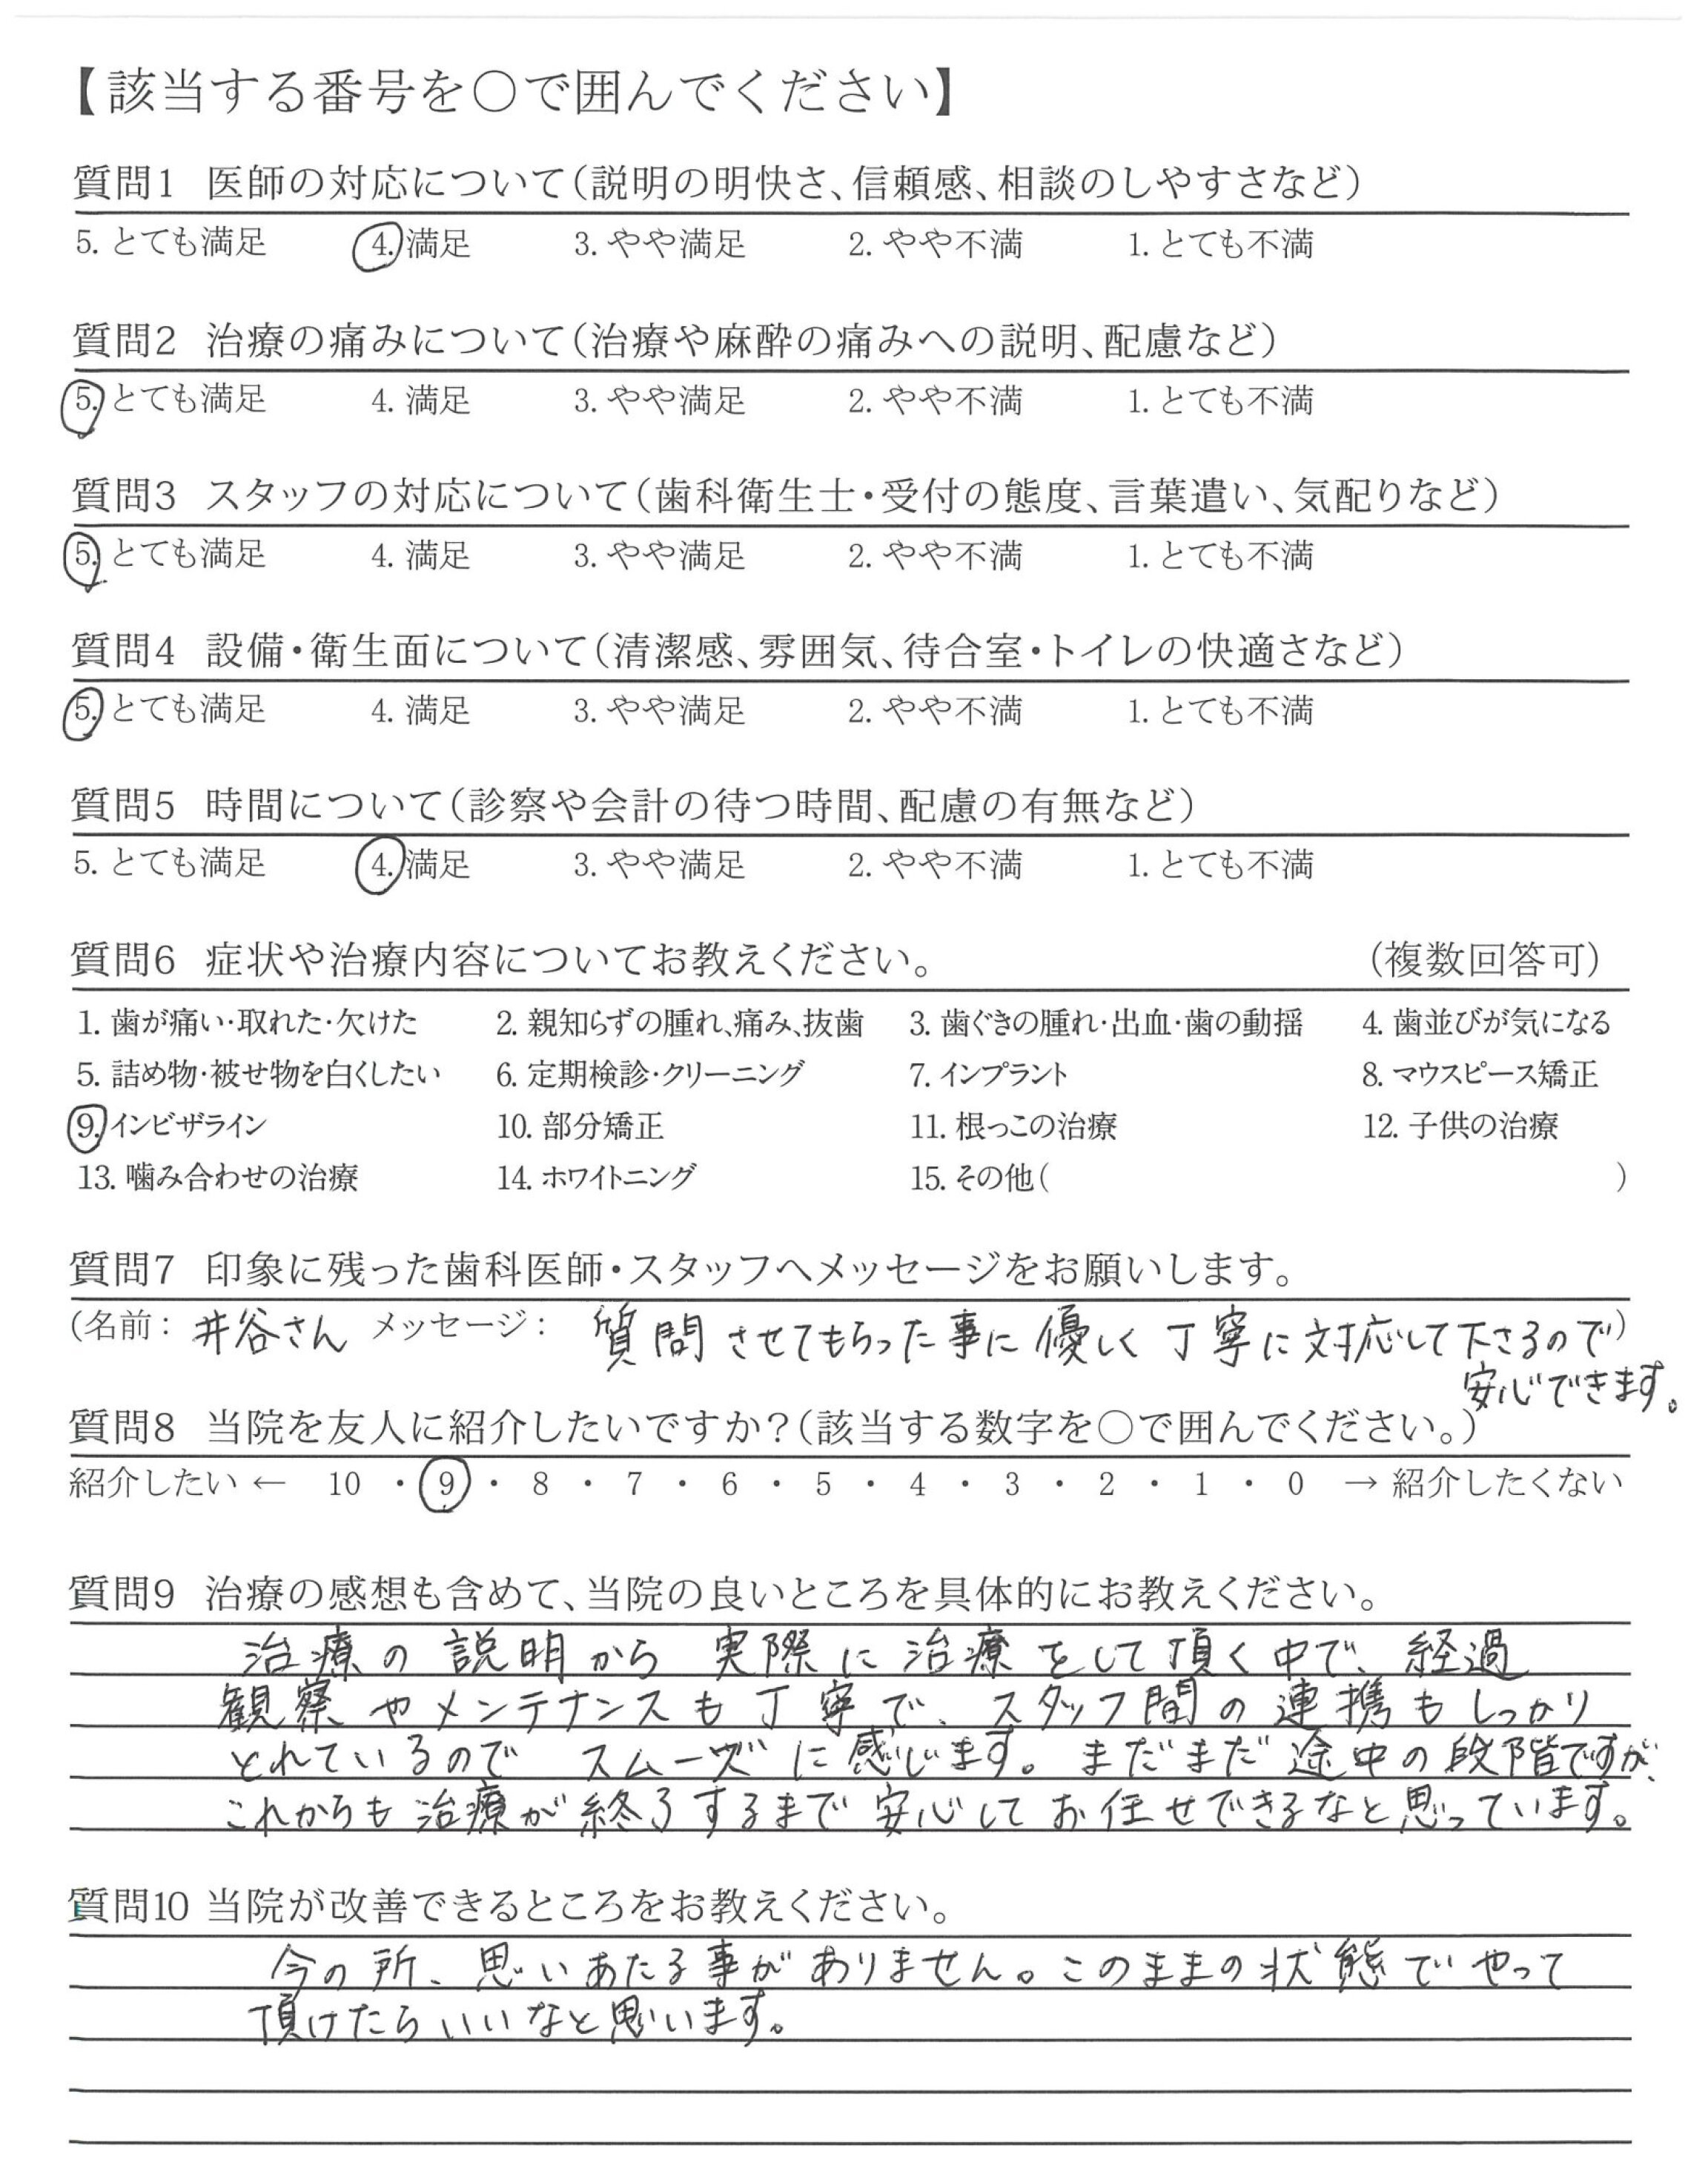 【該当する番号を○で囲んでください】
質問1 医師の対応について(説明の明快さ、信頼感、相談のしやすさなど)
5. とても満足 4. 満足 3. やや満足 2. やや不満 1. とても不満
質問2 治療の痛みについて(治療や麻酔の痛みへの説明、配慮など)
5. とても満足 4. 満足 3. やや満足 2. やや不満 1. とても不満
質問3 スタッフの対応について(歯科衛生士・受付の態度、言葉遣い、気配りなど)
5. とても満足 4. 満足 3. やや満足 2. やや不満 1. とても不満
質問4 設備・衛生面について(清潔感、雰囲気、待合室・トイレの快適さなど)
5. とても満足 4. 満足 3. やや満足 2. やや不満 1. とても不満
質問5 時間について(診察や会計の待つ時間、配慮の有無など)
5. とても満足 4. 満足 3. やや満足 2. やや不満 1. とても不満
質問6 症状や治療内容についてお教えください。 (複数回答可)
1. 歯が痛い・取れた・欠けた 2. 親知らずの腫れ、痛み、抜歯 3. 歯ぐきの腫れ・出血・歯の動揺 4. 歯並びが気になる
5. 詰め物・被せ物を白くしたい 6. 定期検診・クリーニング 7. インプラント 8. マウスピース矯正
9. インビザライン 10. 部分矯正 11. 根っこの治療 12. 子供の治療
13. 噛み合わせの治療 14. ホワイトニング 15. その他( )
質問7 印象に残った歯科医師・スタッフへメッセージをお願いします。
(名前: 井谷さん メッセージ: 質問させてもらった事に優しく丁寧に対応して下さるので)
安心できます。
質問8 当院を友人に紹介したいですか?(該当する数字を○で囲んでください。)
紹介したい ← 10 ・ 9 ・ 8 ・ 7 ・ 6 ・ 5 ・ 4 ・ 3 ・ 2 ・ 1 ・ 0 → 紹介したくない
質問9 治療の感想も含めて、当院の良いところを具体的にお教えください。
治療の説明から実際に治療をして頂く中で、経過
観察やメンテナンスも丁寧で、スタッフ間の連携もしっかり
とれているのでスムーズに感じます。まだまだ途中の段階ですが、
これからも治療が終了するまで安心してお任せできるなと思っています。
質問10 当院が改善できるところをお教えください。
今の所、思いあたる事がありません。このままの状態でやって
頂けたらいいなと思います。